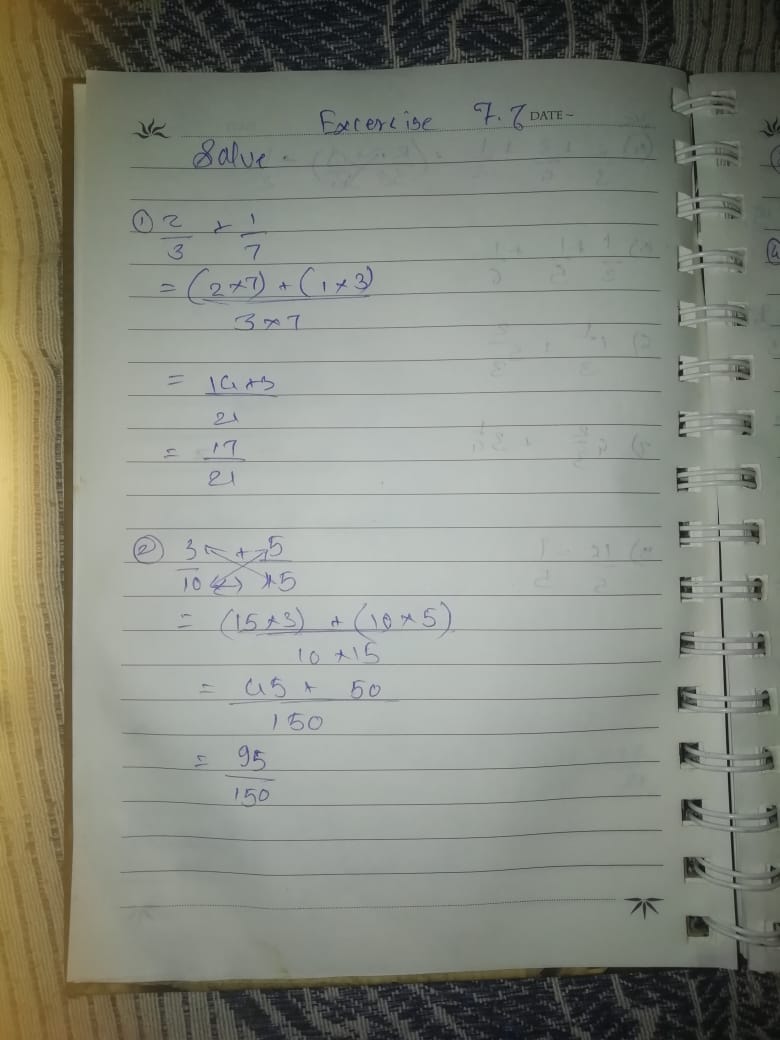 Excercise 7.6 DATE~
Solve
① 2/3 + 1/7
= (2×7) + (1×3)
3×7
= 14+3
21
= 17
21
② 3/10 + 5/15
= (15×3) + (10×5)
10×15
= 45 + 50
150
= 95
150